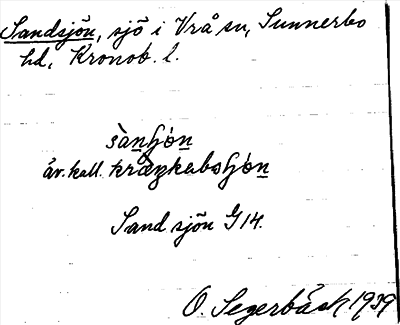 Sandsjön, sjö i Vrå sn, Sunnerbo
hd, Kronob. l.
sànʃjön
äv. kall.
Sandsjön G14.
O. Segerbäck 1939